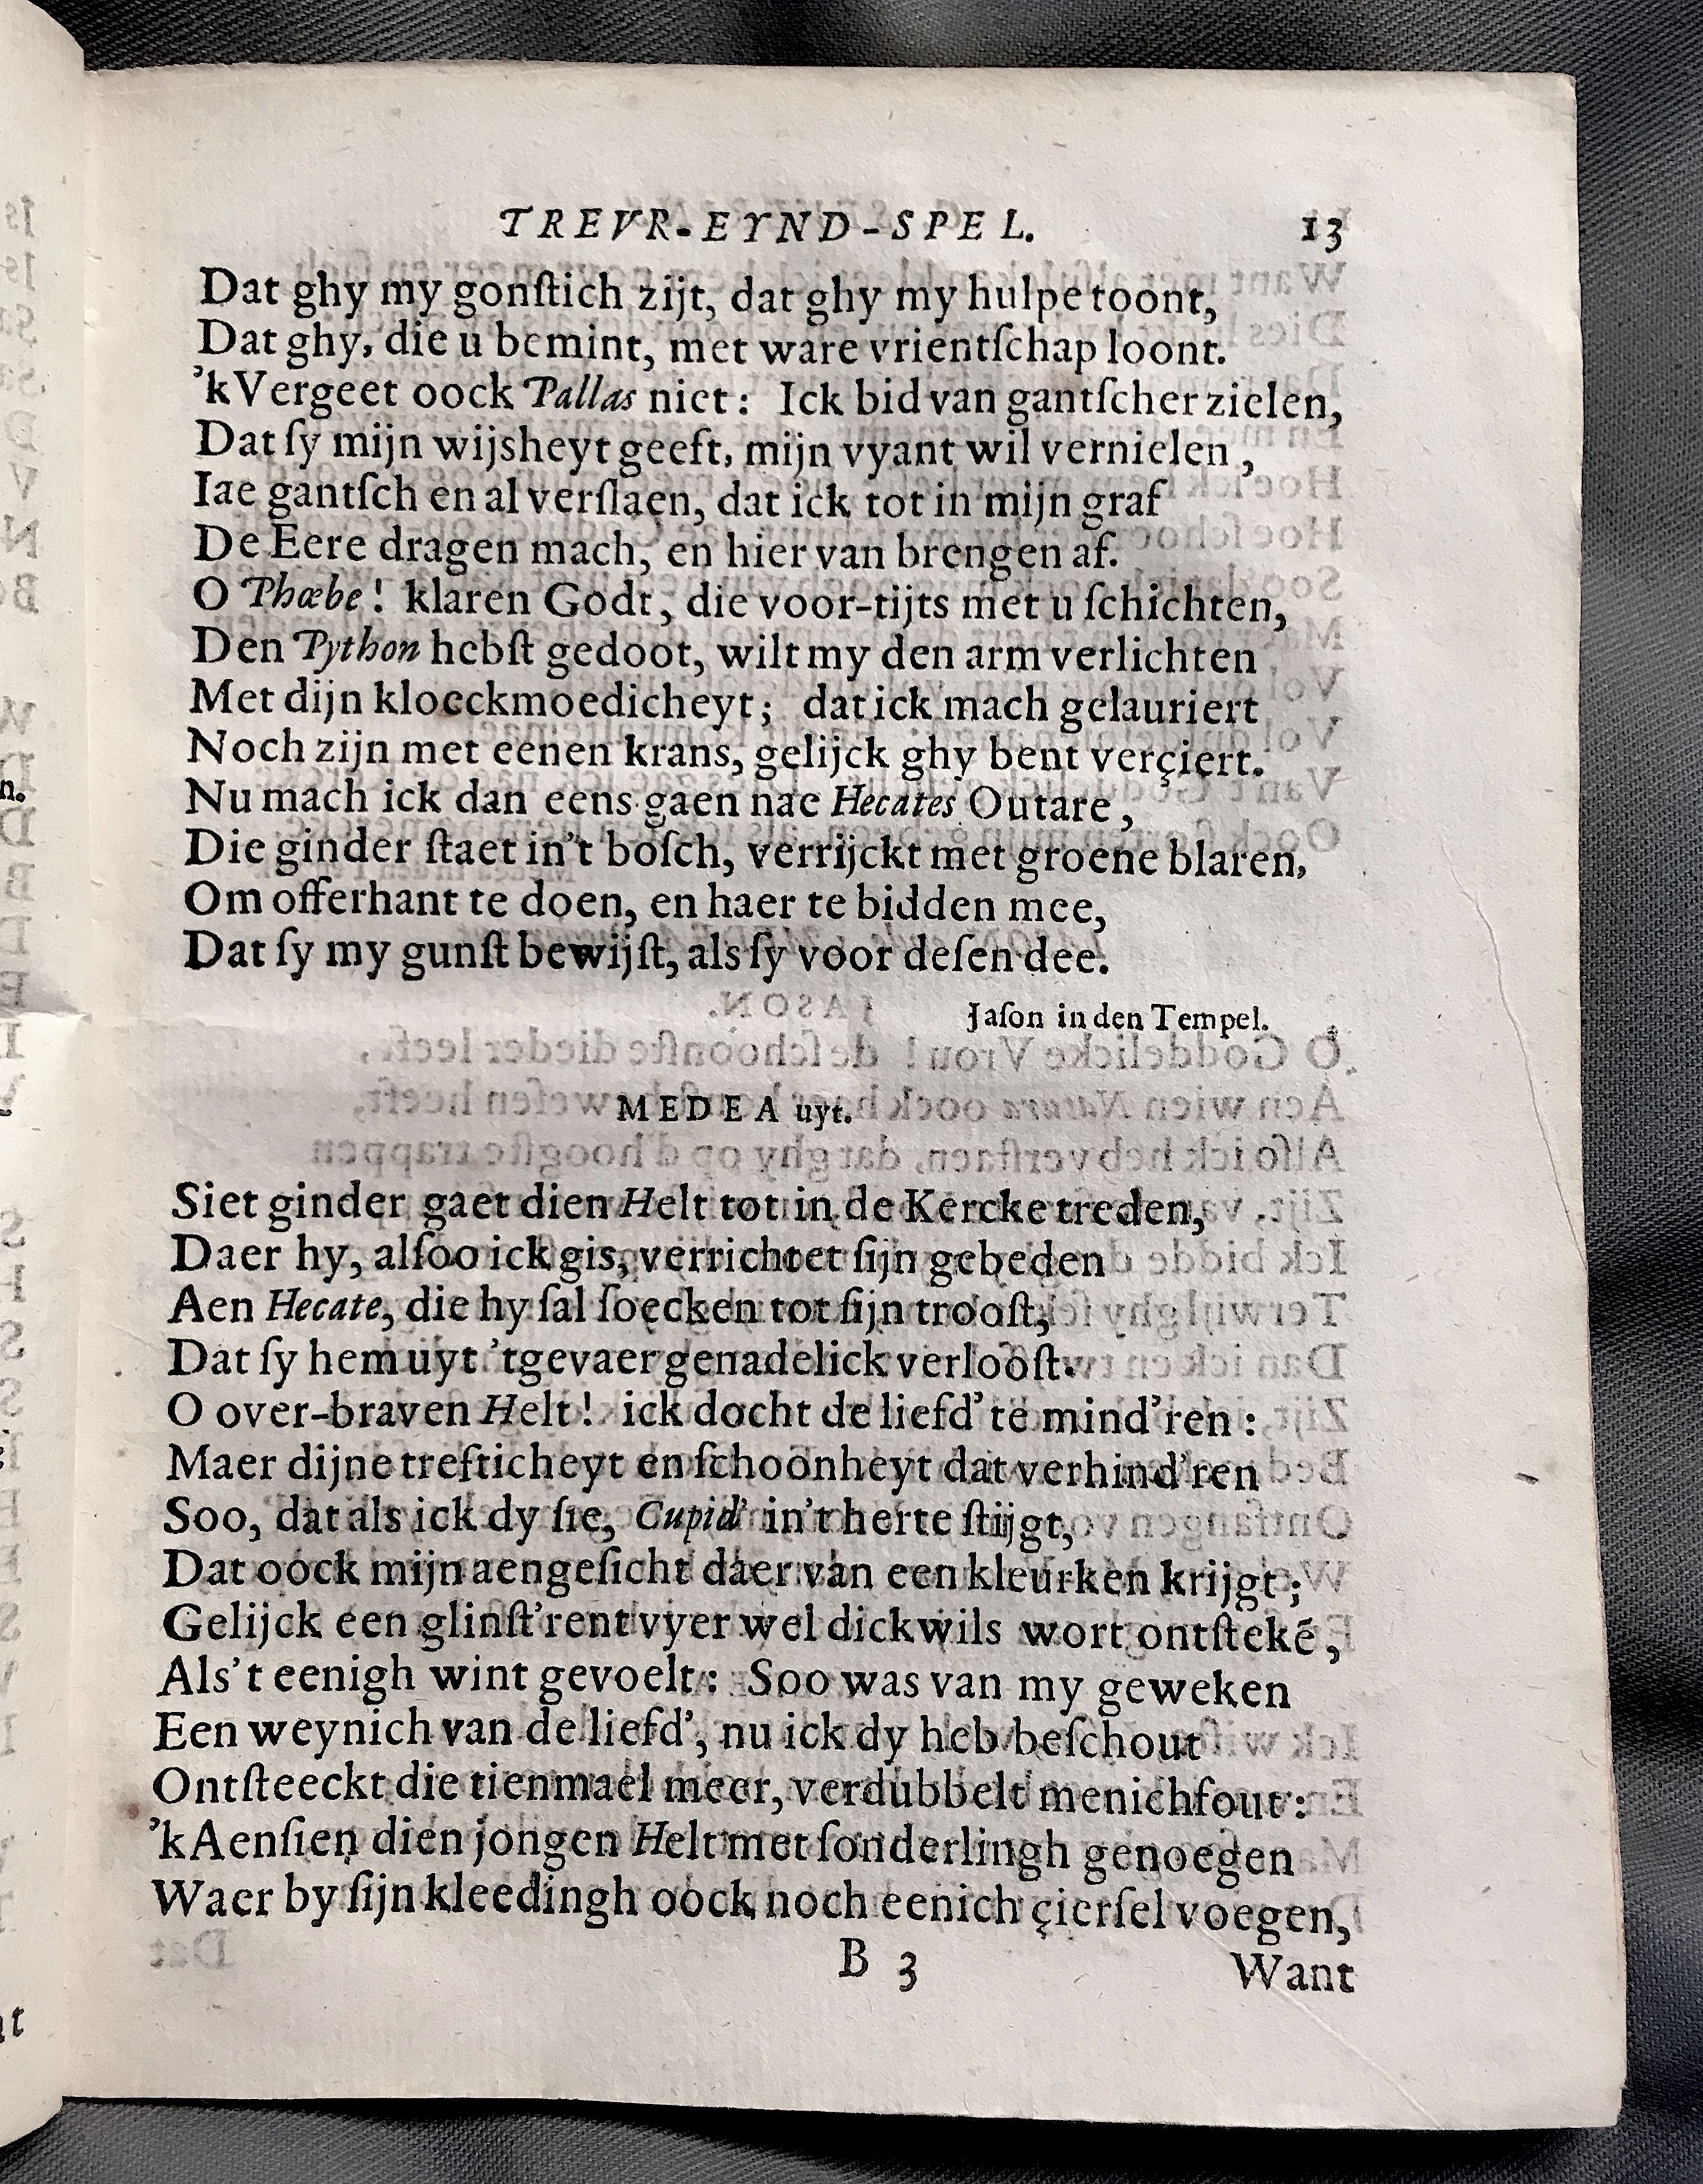 TREVR-EYND-SPEL. 13
Dat ghy my gonſtich zijt, dat ghy my hulpe toont,
Dat ghy, die u bemint, met ware vrientſchap loont.
'k Vergeet oock Pallas niet: Ick bid van gantſcher zielen,
Dat ſy mijn wijsheyt geeft, mijn vyant wil vernielen,
Iae gantſch en al verſlaen, dat ick tot in mijn graf
De Eere dragen mach, en hier van brengen af.
O Phœbe! klaren Godt, die voor-tijts met u ſchichten,
Den Python hebſt gedoot, wilt my den arm verlichten
Met dijn kloeckmoedicheyt; dat ick mach gelauriert
Noch zijn met eenen krans, gelijck ghy bent verçiert.
Nu mach ick dan eens gaen nae Hecates Outare,
Die ginder ſtaet in't boſch, verrijckt met groene blaren,
Om offerhant te doen, en haer te bidden mee,
Dat ſy my gunſt bewijſt, als ſy voor deſen dee.
Jaſon in den Tempel.
MEDEA uyt.
Siet ginder gaet dien Helt tot in de Kercke treden,
Daer hy, alſoo ick gis, verrichtet ſijn gebeden
Aen Hecate, die hy ſal ſoecken tot ſijn trooſt,
Dat ſy hem uyt 'tgevaer genadelick verlooſt.
O over-braven Helt! ick docht de liefd' te mind'ren:
Maer dijne trefticheyt en ſchoonheyt dat verhind'ren
Soo, dat als ick dy ſie, Cupid' in't herte ſtijgt,
Dat oock mijn aengeſicht daer van een kleurken krijgt;
Gelijck een glinſt'rent vyer wel dickwils wort ontſtekē,
Als't eenigh wint gevoelt: Soo was van my geweken
Een weynich van de liefd', nu ick dy heb beſchout
Ontſteeckt die tienmael meer, verdubbelt menichfout:
'k Aenſien dien jongen Helt met ſonderlingh genoegen
Waer by ſijn kleedingh oock noch eenich çierſel voegen,
B 3 Want